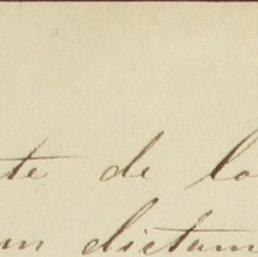 te de la
un dictam